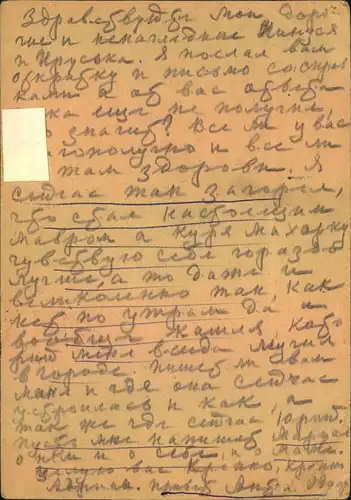 Здравствуйте мои доро-
гие и ненаглядные Нинося
и Ируська. Я послал вам
открытку и письмо со
а об вас ответа
ка еще не получил,
о значит? Все ли у вас
агополучно и все ли
там здоровы. Я
сейчас так загорел,
что стал настоящим
мавром а куря махорку
чувствую себе гораздо
лучше, а то даже и
великолепно так, как
нет по утрам да и
вообще кашля, кото-
рый меня всегда мучил
в городе. Пишет ли вам
Маня и где она сейчас
устроилась и как, а
так же где сейчас Юрий.
пусть мне напишет
о нем и о себе, и
целую вас крепко, крепко
привет